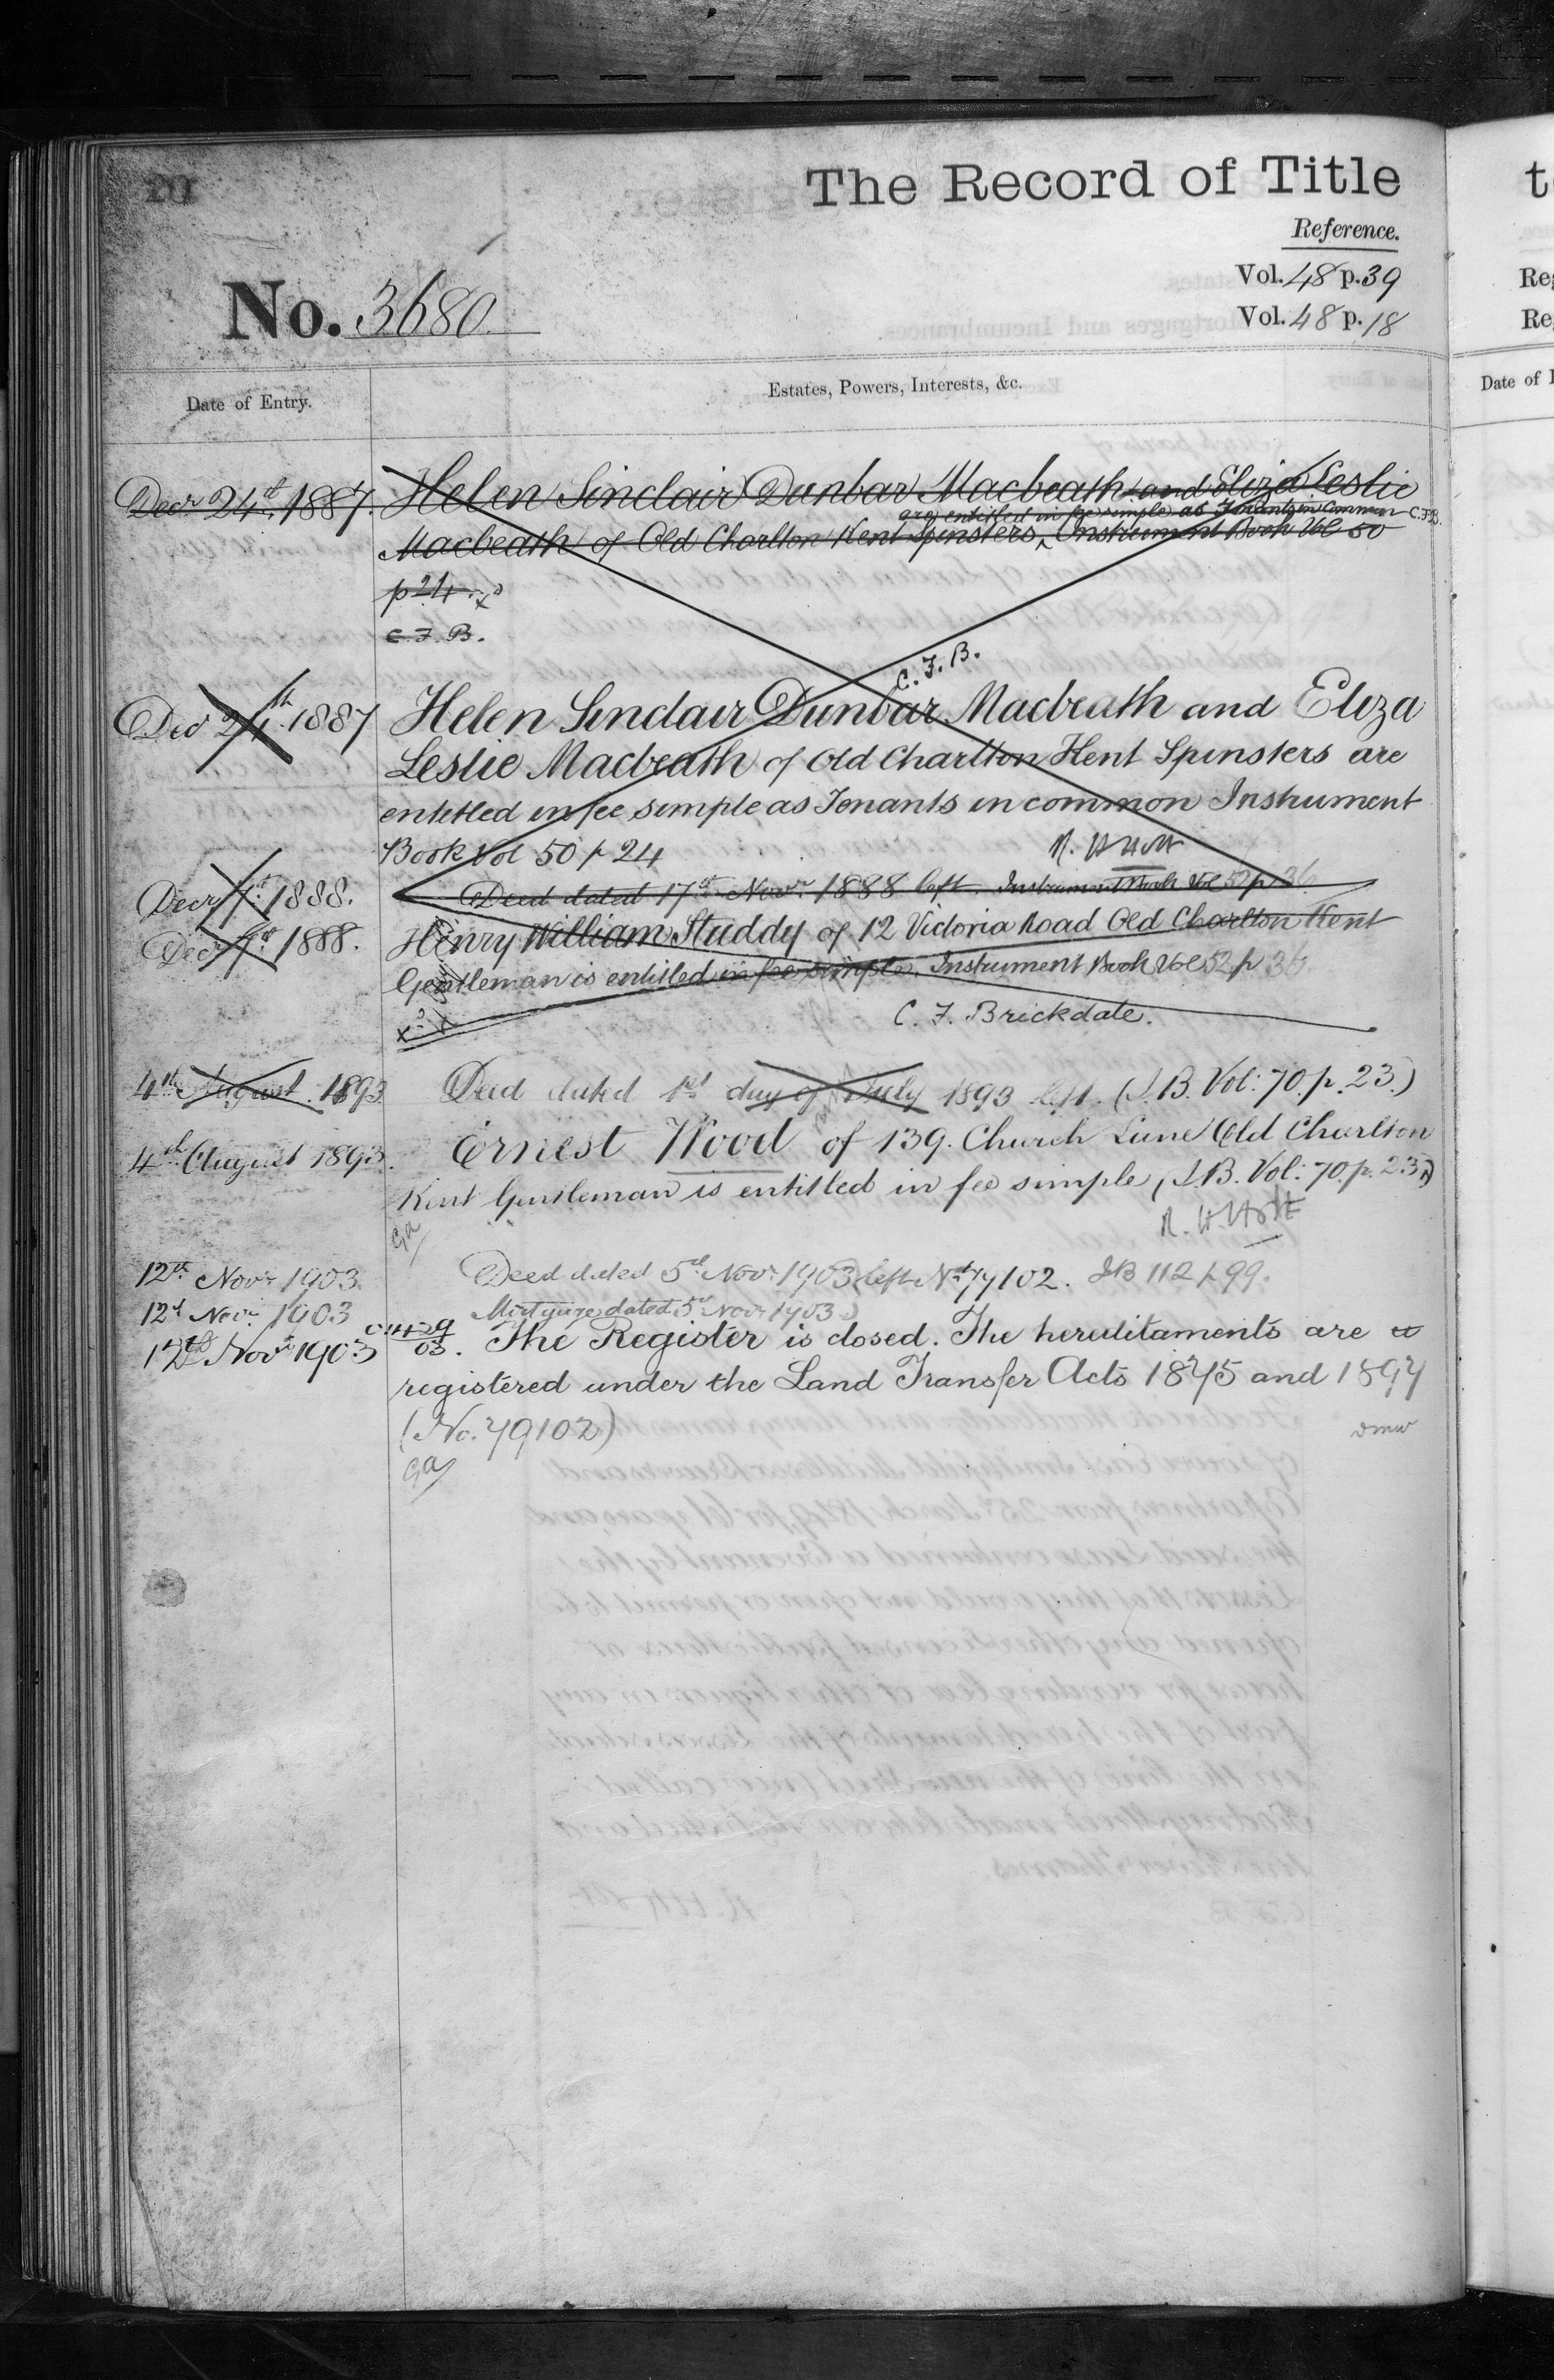 The Record of Title
Reference.
Vol. 48 p. 39
No. 3680
Vol. 48 p. 18
Date of Entry.
Estates, Powers, Interests, &c.
Decr 24th 1887. Helen Sinclair Dunbar Macbeath and Eliza Leslie
are entitled in fee simple as Tenants in Common C.F.B.
Macbeath of Old Charlton Kent Spinsters, ^ Instrument Book Vol 50
p 24.
C.F.B.
C.F.B.
Dec 24th 1887 Helen Sinclair Dunbar Macbeath and Eliza
Leslie Macbeath of Old Charlton Kent Spinsters are
entitled in fee simple as Tenants in common Instrument
Book Vol 50 p 24
R. H. Holt
Decr 4th 1888. Deed dated 17th Novr 1888 left. Instrument Book Vol 52 p 36
Decr 4th 1888. Henry William Studdy of 12 Victoria Road Old Charlton Kent
Gentleman is entitled in fee simple. Instrument Book Vol 52 p 36
C. F. Brickdale.
4th August 1893 Deed dated 1st day of July 1893 left. (I.B. Vol: 70. p. 23.)
4th August 1893. Ernest Wood of 139. Church Lane Old Charlton
Kent Gentleman is entitled in fee simple (I.B. Vol: 70. p. 23.)
R. H. Holt
Ga
12th Novr 1903. Deed dated 5th Novr 1903 left No 79102. IB 112 p 99.
12th Novr 1903 Mortgage dated 5th Novr 1903
12th Novr 1903 03. The Register is closed. The hereditaments are
registered under the Land Transfer Acts 1875 and 1897
(No. 79102)
dmw
Ga
t
Reg
Re
Date of